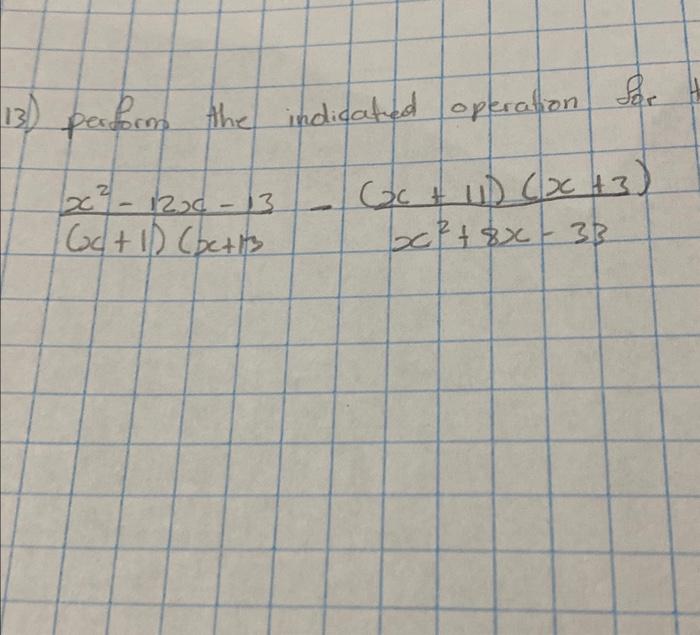 13) perform the indicated operation for
x² - 12x - 13 - (x + 11) (x + 3)
(x + 1) (x+13 x² + 8x - 33